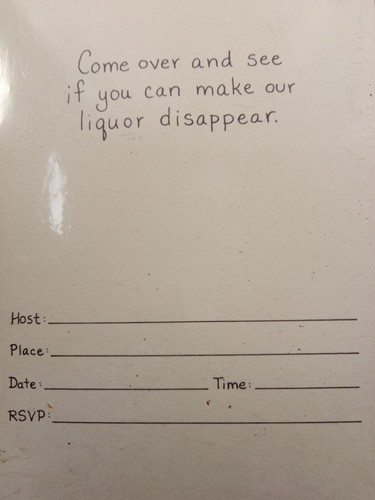 Come over and see
if you can make our
liquor disappear.
Host:
Place:
Date: Time:
RSVP: